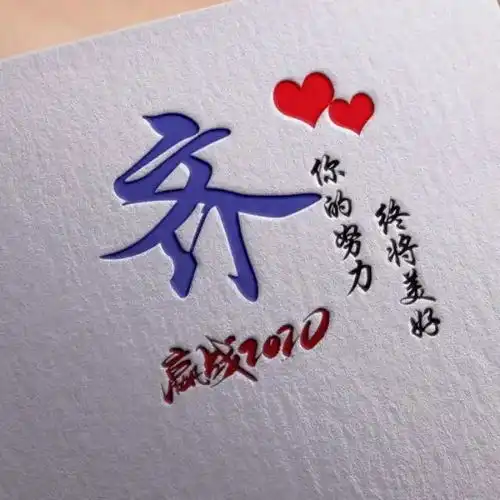 齐
你的努力
终将美好
赢战2020